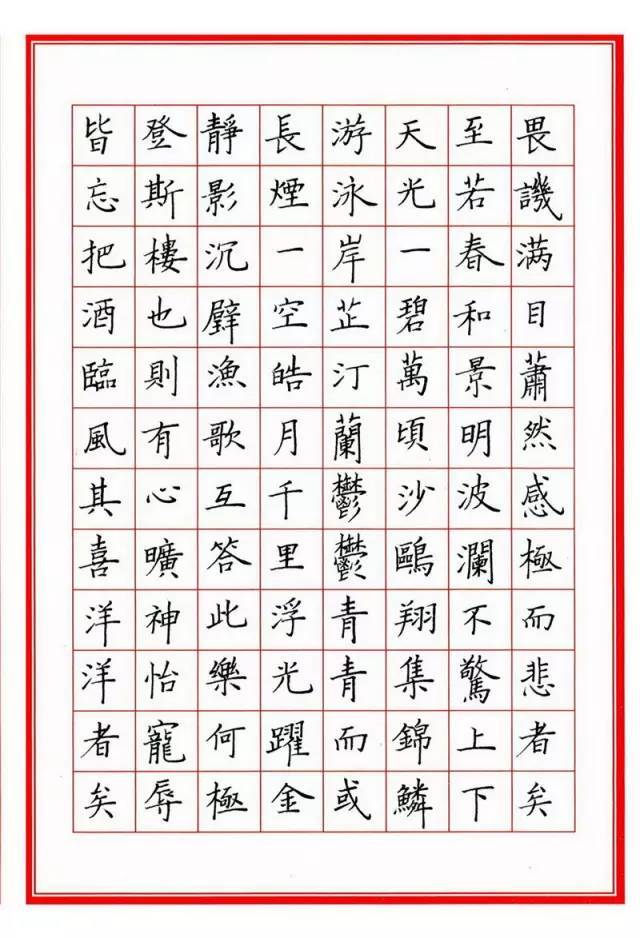 畏譏满目蕭然感極而悲者矣
至若春和景明波瀾不驚上下
天光一碧萬頃沙鷗翔集錦鱗
游泳岸芷汀蘭鬱鬱青青而或
長煙一空皓月千里浮光躍金
靜影沉璧漁歌互答此樂何極
登斯樓也則有心曠神怡寵辱
皆忘把酒臨風其喜洋洋者矣